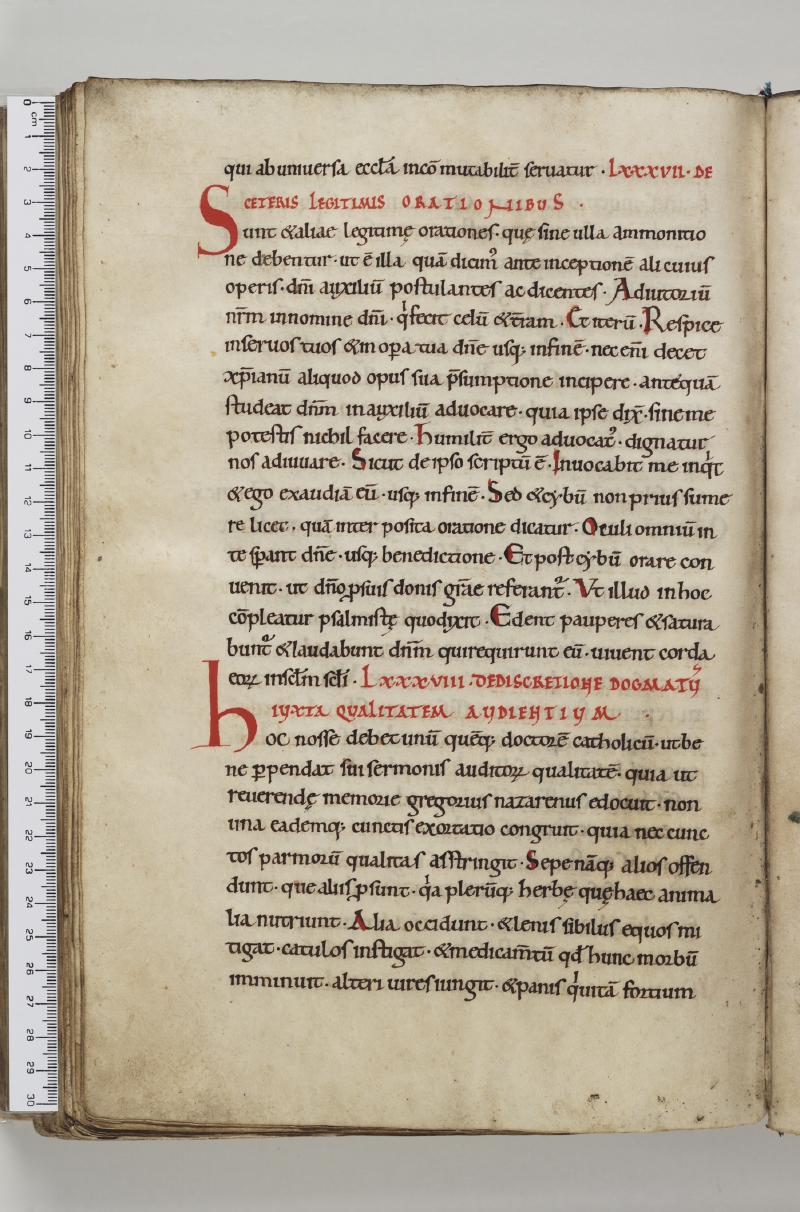 qui ab uniuersa eccła incōmutabilit̄ seruatur · LXXXVII · DE
CETERIS LEGITIMIS ORATIONIBUS ·
Sunt &aliae legitimę orationes · quę sine ulla ammonitio
ne debentur · ut ē illa quā dicim᾽ ante inceptionē alicuius
operis · dn̄i auxiliū postulantes ac dicentes · Adiutoriū
nr̄m innomine dn̄i · q̍ fecit celū &t̄ram · Et iterū · Respice
inseruos tuos &in oꝑa tua dn̄e usq; infinē · nec eni decet
xp̄ianū aliquod opus sua p̄sumptione incipere · antequā
studeat dn̄m inauxiliū aduocare · quia ipse dix̄ · sine me
potestis nichil facere · Humilit̄ ergo aduocat᾽ · dignatur
nos adiuuare · Sicut de ipso scriptū ē · Inuocabit me inq̍t
&ego exaudiā eū · usq; infinē · Sed &cybū non prius sume
re licet · quā inter posita oratione dicatur · Oculi omniū in
te sꝑant dn̄e · usq; benedictione · Et post cybū orare con
uenit · ut dn̄o ꝓ suis donis gr̄ae referant᾽ · Vt illud in hoc
cōpleatur psalmistę quod dixit · Edent pauperes &satura
bunt᾽ &laudabunt dn̄m qui requirunt eū · uiuent corda
eoꝝ insclm scłi · LXXXVIII · DE DISCRETIONE DOGMATŪ
IUXTA QUALITATEM AUDIENTIUM
Hoc nosse debet unū quēq; doctorē catholicū · ut be
ne ꝑpendat sui sermonis auditoꝝ qualitatē · quia ut
reuerendę memorie gregorius nazarenus edocuit · non
una eademq; cunctis exortatio congruit · quia nec cunc
tos par morū qualitas asstringit · Sepe nāq; alios offen
dunt · que aliis ꝓsunt · q̍a plerūq; herbę quę haec anima
lia nutriunt · Alia occidunt · &lenis sibilus equos mi
tigat · catulos instigat · &medicam̄tū qđ hunc morbū
imminuit · alteri uires iungit · &panis q̍ uitā fortium